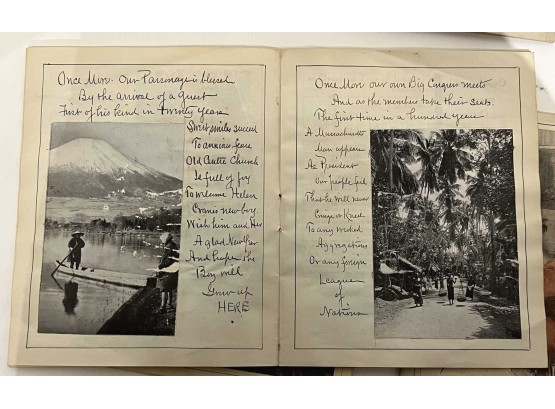 Once More Our Parsonage is blessed
By the arrival of a guest
First of his kind in twenty years
Sweet smiles succeed
To anxious fears
Old Church
Is full of joy
To welcome Helen
Crane's new boy
Wish him and Her
A glad New Year
And hope the
Boy will
Grow up
HERE
Once More our own Big Congress meets
And as the members take their seats.
The first time in a hundred years
A Massachusetts
Man appears
As President
Our people feel
That he will never
Cringe or Kneel
To any wicked
Aggregations
Or any foreign
League
of
Nations